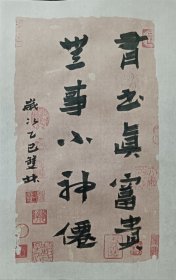 有書真富貴
無事小神僊
歲次乙巳